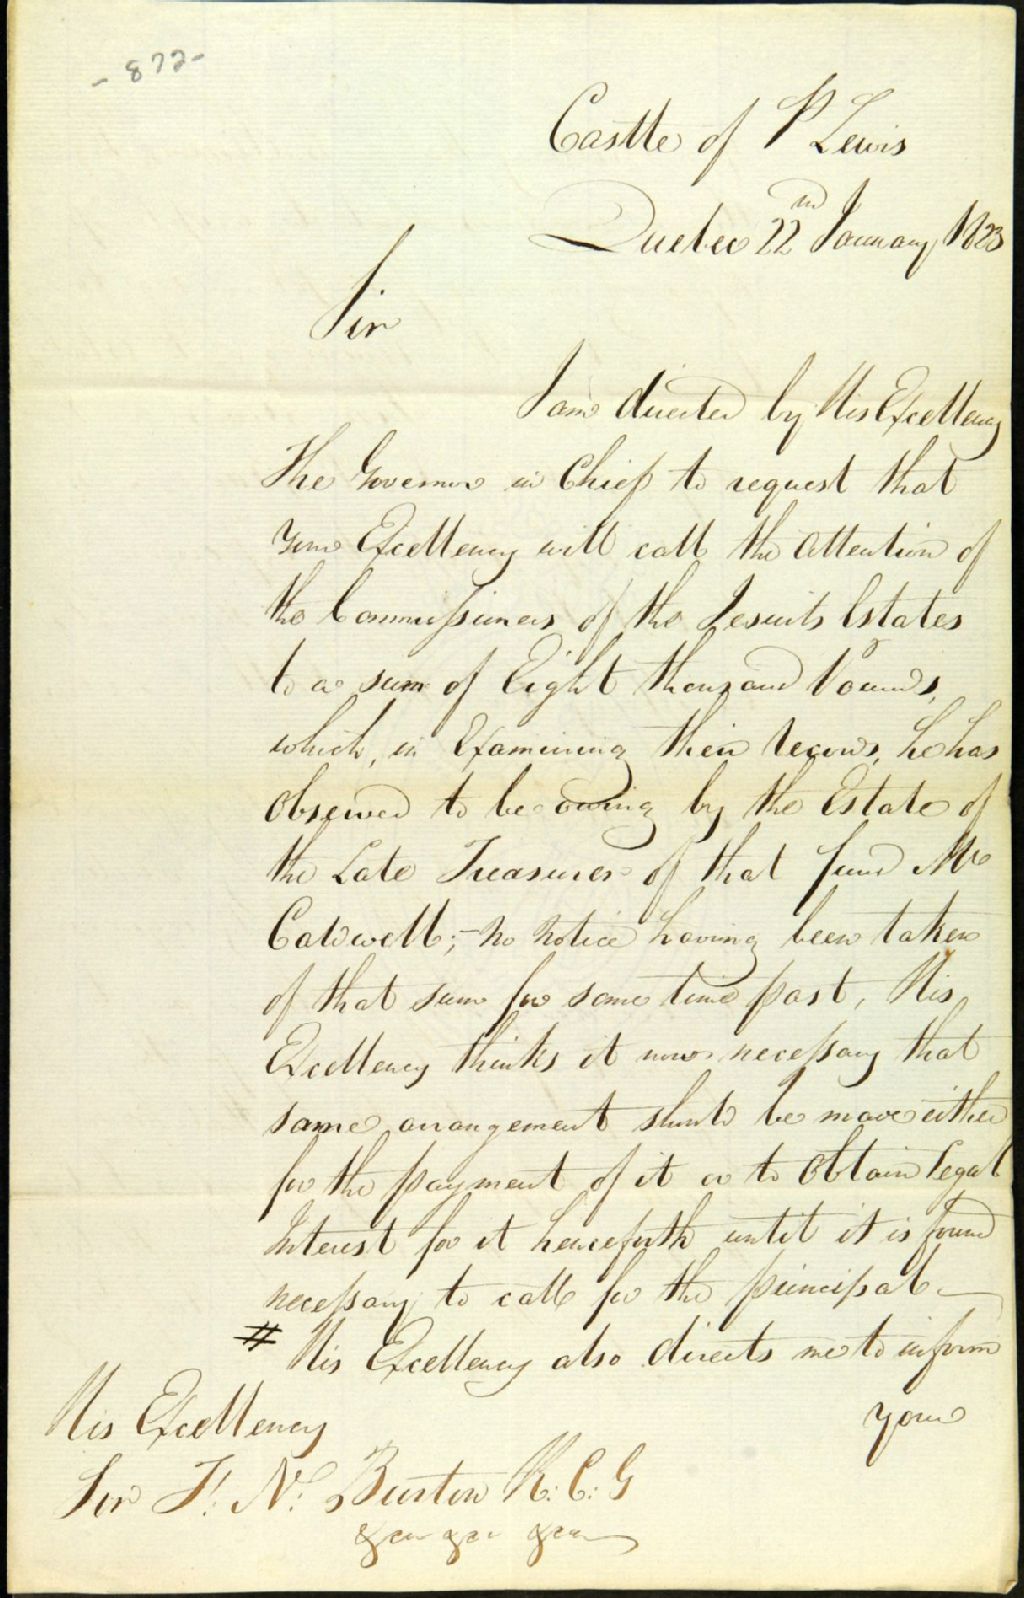 - 872 -
Castle of St Lewis
Quebec 22nd January 1823
Sir
I am directed by His Excellency
The Governor in Chief to request that
Your Excellency will call the attention of
the Commissioners of the Jesuits Estates
to a sum of Eight thousand Pounds,
which, in Examining their records, he has
Observed to be owing by the Estate of
the Late Treasurer of that fund Mr
Caldwell; - no notice having been taken
of that sum for some time past, His
Excellency thinks it now necessary that
some arrangement should be made either
for the payment of it or to obtain Legal
Interest for it henceforth until it is found
necessary to call for the principal -
# His Excellency also directs me to inform
your
His Excellency
Sir F: N: Burton K: C: G
&ca &ca &ca